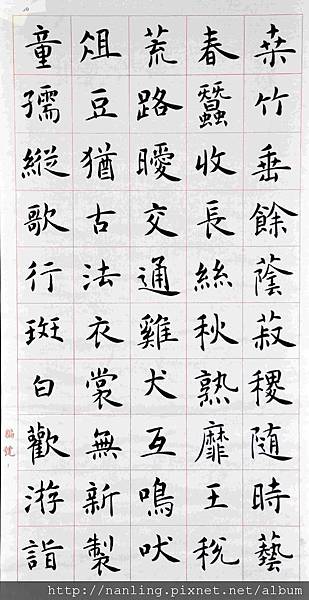 桒竹垂餘蔭菽稷随時藝
春蠶收長絲秋熟靡王稅
荒路曖交通雞犬互鳴吠
俎豆猶古法衣裳無新製
童孺縱歌行斑白歡游詣
編號：
http://nanling.pixnet.net/album